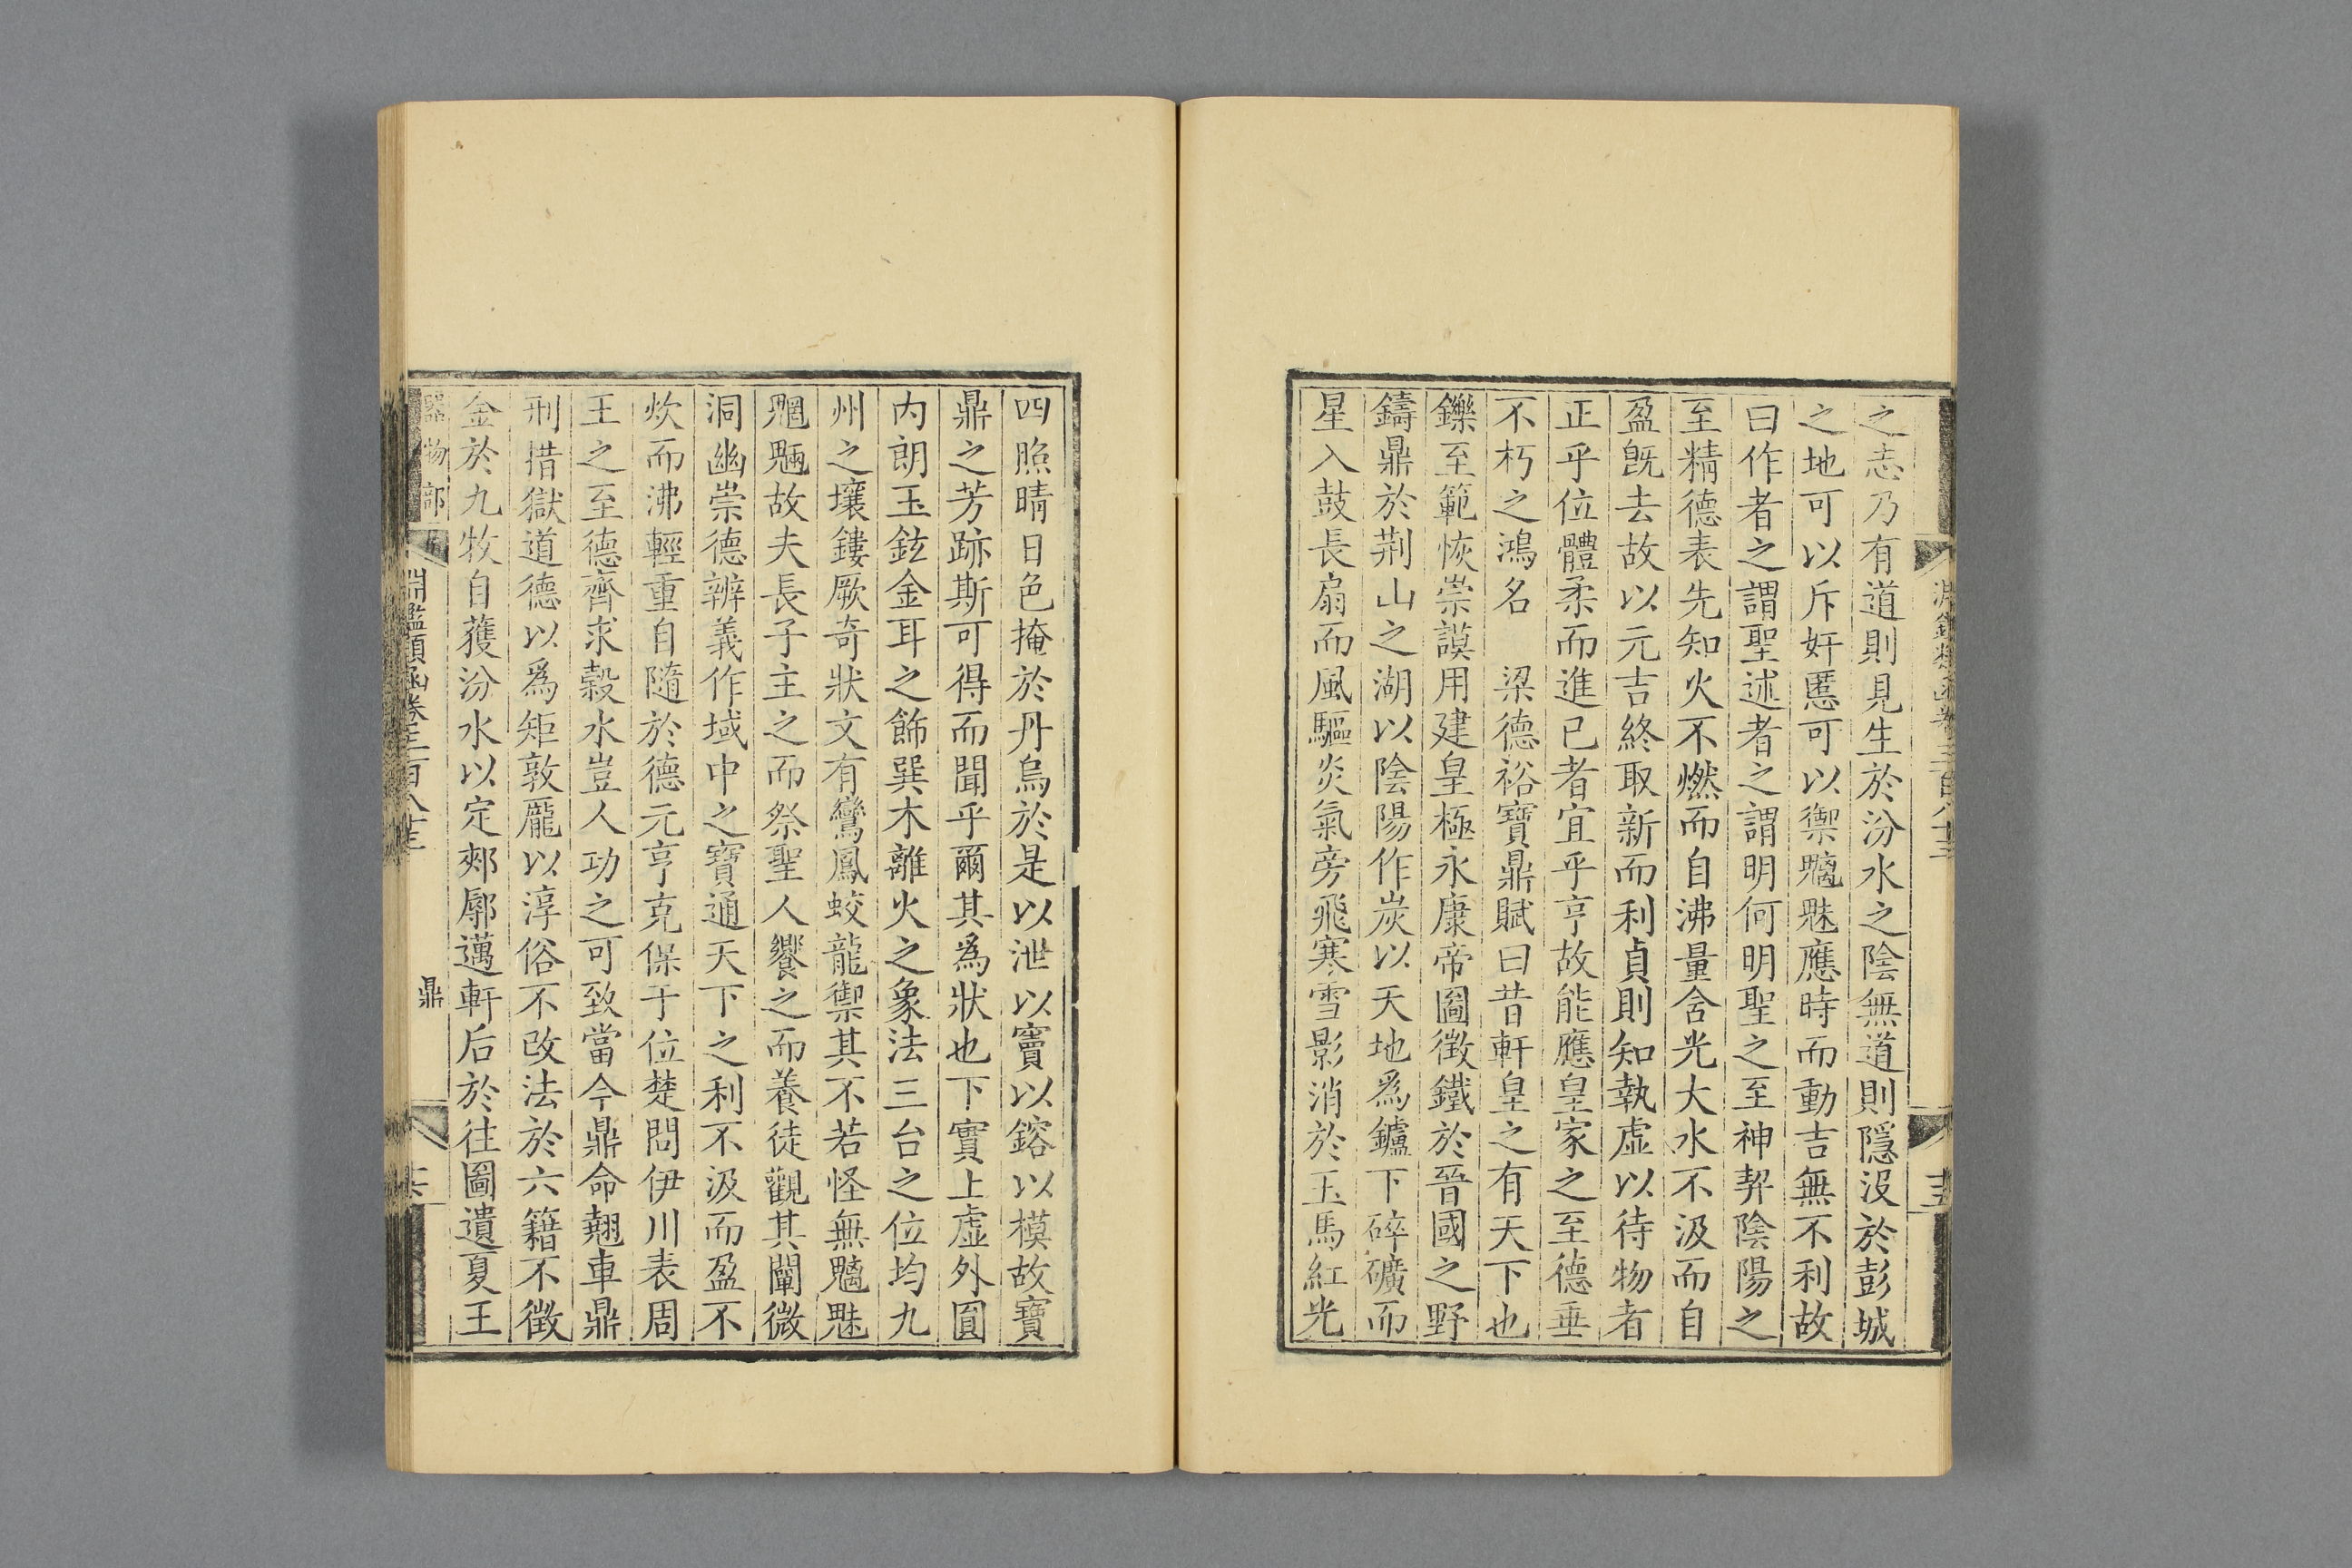 之志乃有道則見生於汾水之陰無道則隱沒於彭城
之地可以斥奸慝可以禦魑魅應時而動吉無不利故
曰作者之謂聖述者之謂明何明聖之至神契陰陽之
至精德表先知火不燃而自沸量舍光大水不汲而自
盈旣去故以元吉終取新而利貞則知執虛以待物者
正乎位體柔而進已者宜乎亨故能應皇家之至德垂
不朽之鴻名　梁德裕寶鼎賦曰昔軒皇之有天下也
鑠至範恢崇謨用建皇極永康帝圖徵鐵於晉國之野
鑄鼎於荆山之湖以陰陽作炭以天地爲鑪下碎礦而
星入鼓長扇而風驅炎氣旁飛寒雪影消於玉馬紅光
四照晴日色掩於丹烏於是以泄以竇以鎔以模故寶
鼎之芳跡斯可得而聞乎爾其爲狀也下實上虛外圓
内朗玉鉉金耳之飾巽木離火之象法三台之位均九
州之壤鏤厥奇狀文有鸞鳳蛟龍禦其不若怪無魑魅
魍魎故夫長子主之而祭聖人饗之而養徒觀其闡微
洞幽崇德辨義作域中之寶通天下之利不汲而盈不
炊而沸輕重自隨於德元亨克保于位楚問伊川表周
王之至德齊求穀水豈人功之可致當今鼎命翹車鼎
刑措獄道德以爲矩敦龐以淳俗不改法於六籍不徵
金於九牧自獲汾水以定郟廓邁軒后於往圖遺夏王
器物部
淵鑑類函卷三百八十三
鼎